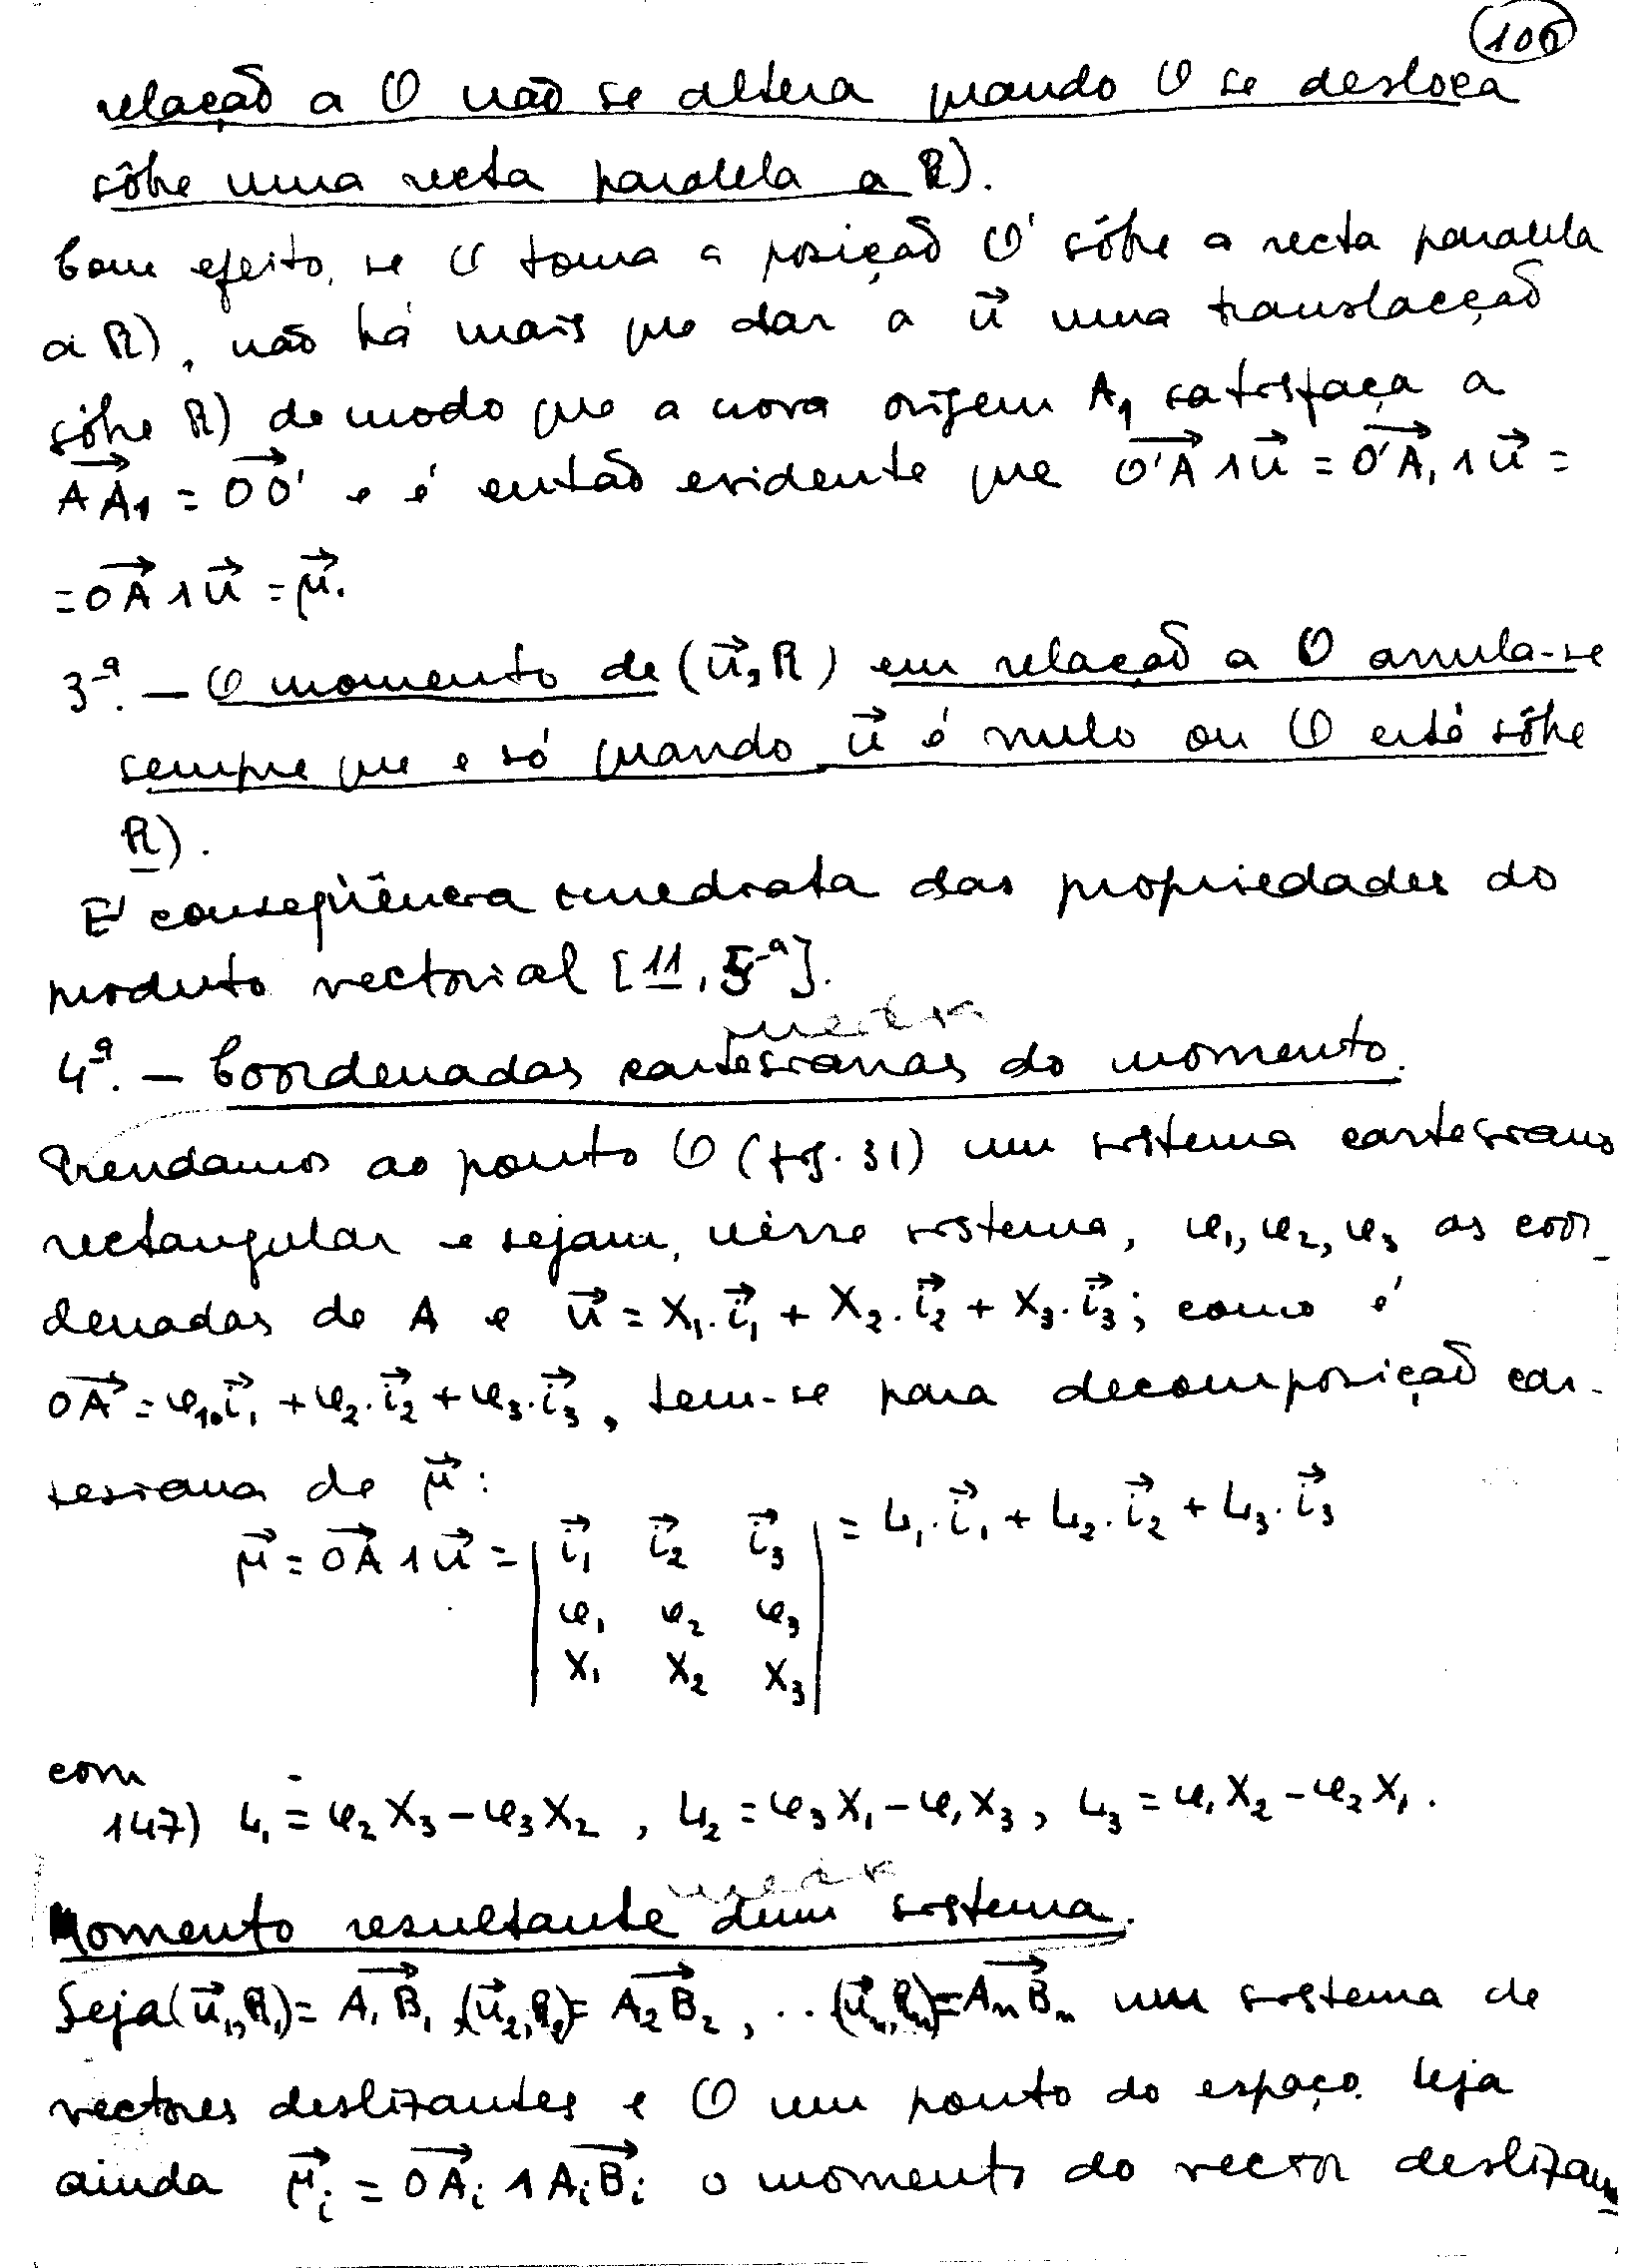 106
relação a O não se altera quando O se desloca
sôbre uma recta paralela a R).
Com efeito, se O toma a posição O' sôbre a recta paralela
a R), não há mais que dar a u⃗ uma translacção
sôbre R) de modo que a nova origem A₁ satisfaça a
AA₁⃗ = OO'⃗ e é então evidente que O'A⃗ ∧ u⃗ = O'A₁⃗ ∧ u⃗ =
= OA⃗ ∧ u⃗ = μ⃗.
3.ª — O momento de (u⃗, R) em relação a O anula-se
sempre que e só quando u⃗ é nulo ou O está sôbre
R).
É conseqüência imediata das propriedades do
produto vectorial [11, 5.ª].
4.ª — Coordenadas cartesianas do momento.
Prendamos ao ponto O (fig. 31) um sistema cartesiano
rectangular e sejam, nêsse sistema, φ₁, φ₂, φ₃ as coor-
denadas de A e u⃗ = X₁. i⃗₁ + X₂. i⃗₂ + X₃. i⃗₃; como é
OA⃗ = φ₁. i⃗₁ + φ₂. i⃗₂ + φ₃. i⃗₃, tem-se para decomposição car-
tesiana de μ⃗:
μ⃗ = OA⃗ ∧ u⃗ = | i⃗₁ i⃗₂ i⃗₃ | = L₁. i⃗₁ + L₂. i⃗₂ + L₃. i⃗₃
φ₁ φ₂ φ₃
X₁ X₂ X₃
com
147) L₁ = φ₂ X₃ - φ₃ X₂, L₂ = φ₃ X₁ - φ₁ X₃, L₃ = φ₁ X₂ - φ₂ X₁.
Momento resultante dum sistema.
Seja (u⃗₁, R₁) = A₁B₁⃗, (u⃗₂, R₂) = A₂B₂⃗, ... (u⃗ₙ, Rₙ) = AₙBₙ⃗ um sistema de
vectores deslizantes e O um ponto do espaço. Seja
ainda μ⃗ᵢ = OAᵢ⃗ ∧ AᵢBᵢ⃗ o momento do vector deslizan-